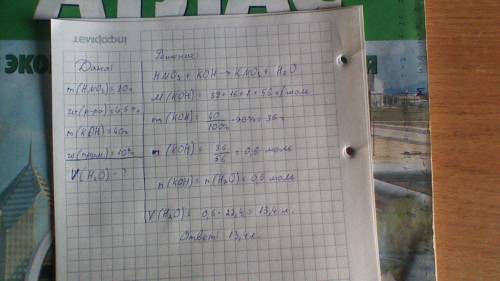 информат
АТЛАС
ЭКО
ИЯ
Дано:
m(HNO₃)=20г
m(KOH)=40г
w(прим)=10%
V(H₂O)-?
Решение:
HNO₃ + KOH → KNO₃ + H₂O
M(KOH) = 39+16+1=56 г/моль
m(KOH) = 40/100% · 90% = 36г
n(KOH) = 36/56 = 0,6 моль
n(KOH) = n(H₂O) = 0,6 моль
V(H₂O) = 0,6 · 22,4 = 13,4 л.
Ответ: 13,4 л.